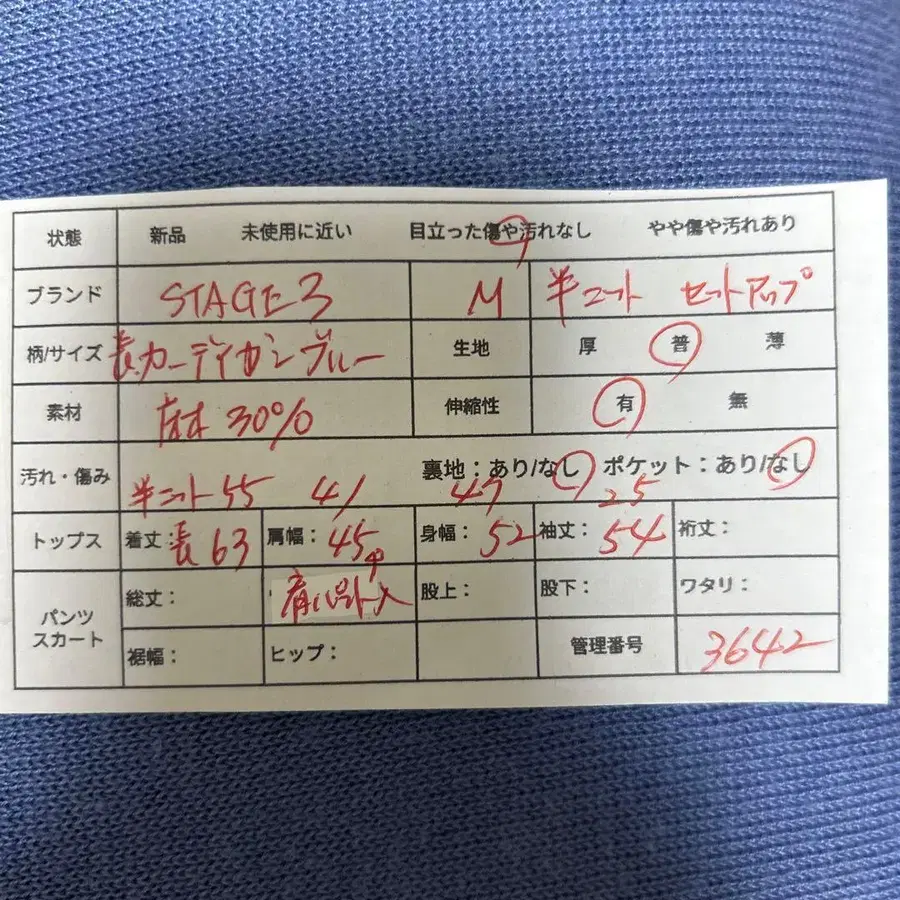 状態 新品 未使用に近い 目立った傷や汚れなし やや傷や汚れあり
ブランド STAGE3 M 半ニット セットアップ
柄/サイズ 長カーディガンブルー 生地 厚 普 薄
素材 麻 30% 伸縮性 有 無
汚れ・傷み 裏地:あり/なし ポケット:あり/なし
半ニット 55 41 47 25
トップス 着丈:長63 肩幅:45 身幅:52 袖丈:54 裄丈:
パンツ スカート 総丈: 肩パット入 股上: 股下: ワタリ:
裾幅: ヒップ: 管理番号 3642